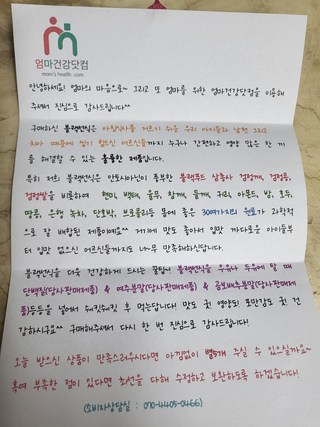 엄마건강닷컴
mom's health .com
안녕하세요! 엄마의 마음으로~ 그리고 또 엄마를 위한 엄마건강닷컴을 이용해
주셔서 진심으로 감사드립니다^^
구매하신 블랙변신은 아침식사를 거르기 쉬운 우리 아이들과 남편 그리고
치아 때문에 씹기 힘드신 어르신들까지 누구나 간편하고 영양 많은 한 끼
를 해결할 수 있는 훌륭한 제품입니다.
특히 저희 블랙변신은 안토시아닌이 풍부한 블랙푸드 삼총사 검정깨, 검정콩,
검정쌀을 비롯하여 현미, 백태, 율무, 참깨, 들깨, 귀리, 아몬드, 밤, 호두,
땅콩, 은행, 녹차, 단호박, 브로콜리등 몸에 좋은 30여가지의 원료가 과학적
으로 잘 배합된 제품이에요~ 거기에 맛도 좋아서 입맛 까다로운 아이들부
터 입맛 없으신 어르신들까지도 너~무 만족해하신답니다.
블랙변신을 더욱 건강하게 드시는 꿀팁! 블랙변신을 우유나 두유에 탈 때
단백질(당사판매제품) & 여주분말(당사판매제품) & 곰보배추분말(당사판매제
품)등등을 넣어서 쉐킷쉐킷 후 먹는답니다! 맛도 굿! 영양도! 포만감도 굿! 건
강하시구요~ 구매해주셔서 다시 한 번 진심으로 감사드립니다.
오늘 받으신 상품이 만족스러우시다면 아낌없이 별5개 주실 수 있으실까요~
혹여 부족한 점이 있다면 최선을 다해 수정하고 보완하도록 하겠습니다!
(소비자상담실 : 070-4405-0466)